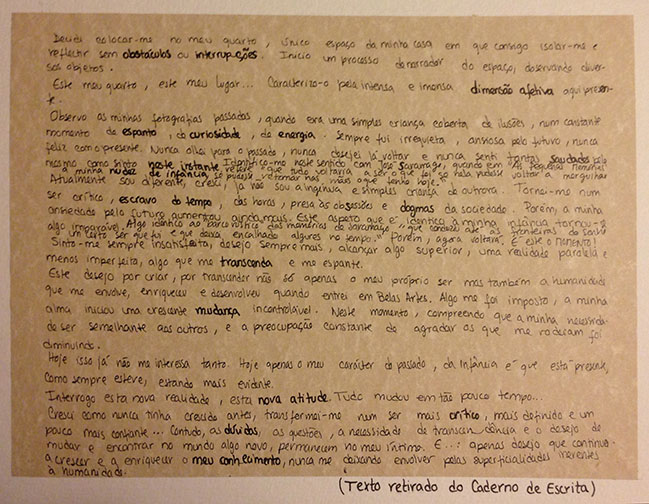 Decidi colocar-me no meu quarto, único espaço da minha casa em que consigo isolar-me e
reflectir sem obstáculos ou interrupções. Inicio um processo de narrador do espaço, observando diver-
sos objetos.
Este meu quarto, este meu lugar... Caracterizo-o pela intensa e imensa dimensão afetiva aqui presen-
te.
Observo as minhas fotografias passadas, quando era uma simples criança coberta de ilusões, num constante
momento de espanto, de curiosidade, de energia. Sempre fui irrequieta, ansiosa pelo futuro, nunca
feliz com o presente. Nunca olhei para o passado, nunca desejei lá voltar e nunca senti tantas saudades pelo
mesmo como sinto neste instante. Identifico-me neste sentido com José Saramago, quando em As pequenas memórias
a minha nudez de infância, refere que tudo voltaria a ser o que foi se nela pudesse voltar a mergulhar
Atualmente sou diferente, cresci, já não sou a ingénua e simples criança de outrora. Tornei-me num
ser crítico, escravo do tempo, das horas, presa às obsessões e dogmas da sociedade. Porém, a minha
ansiedade pelo futuro aumentou ainda mais. Este aspeto que é idêntico à minha infância tornou-o
algo imparável. Algo idêntico ao barco das memórias de Saramago, "que conduziu até às fronteiras do sonho
o ser que fui e que deixa encalhado algures no tempo." Porém, agora voltará. E este é o MOMENTO!
Sinto-me sempre insatisfeita, desejo sempre mais, alcançar algo superior, uma realidade paralela e
menos imperfeita, algo que me transcenda e me espante.
Este desejo por criar, por transcender não só apenas o meu próprio ser mas também a humanidade
que me envolve, enriqueceu e desenvolveu quando entrei em Belas Artes. Algo me foi imposto, a minha
alma iniciou uma crescente mudança incontrolável. Neste momento, compreendo que a minha necessidade
de ser semelhante aos outros, e a preocupação constante de agradar os que me rodeiam foi
diminuindo.
Hoje isso já não me interessa tanto. Hoje apenas o meu carácter do passado, da Infância é que está presente,
como sempre esteve, estando mais evidente.
Interrogo esta nova realidade, esta nova atitude. Tudo mudou em tão pouco tempo...
Cresci como nunca tinha crescido antes, transformei-me num ser mais crítico, mais definido e um
pouco mais confiante... Contudo, as dúvidas, as questões, a necessidade de transcendência e o desejo de
mudar e encontrar no mundo algo novo, permanecem no meu íntimo. E...: apenas desejo que continue
a crescer e a enriquecer o meu conhecimento, nunca me deixando envolver pelas superficialidades inerentes
à humanidade.
(Texto retirado do Caderno de Escrita)